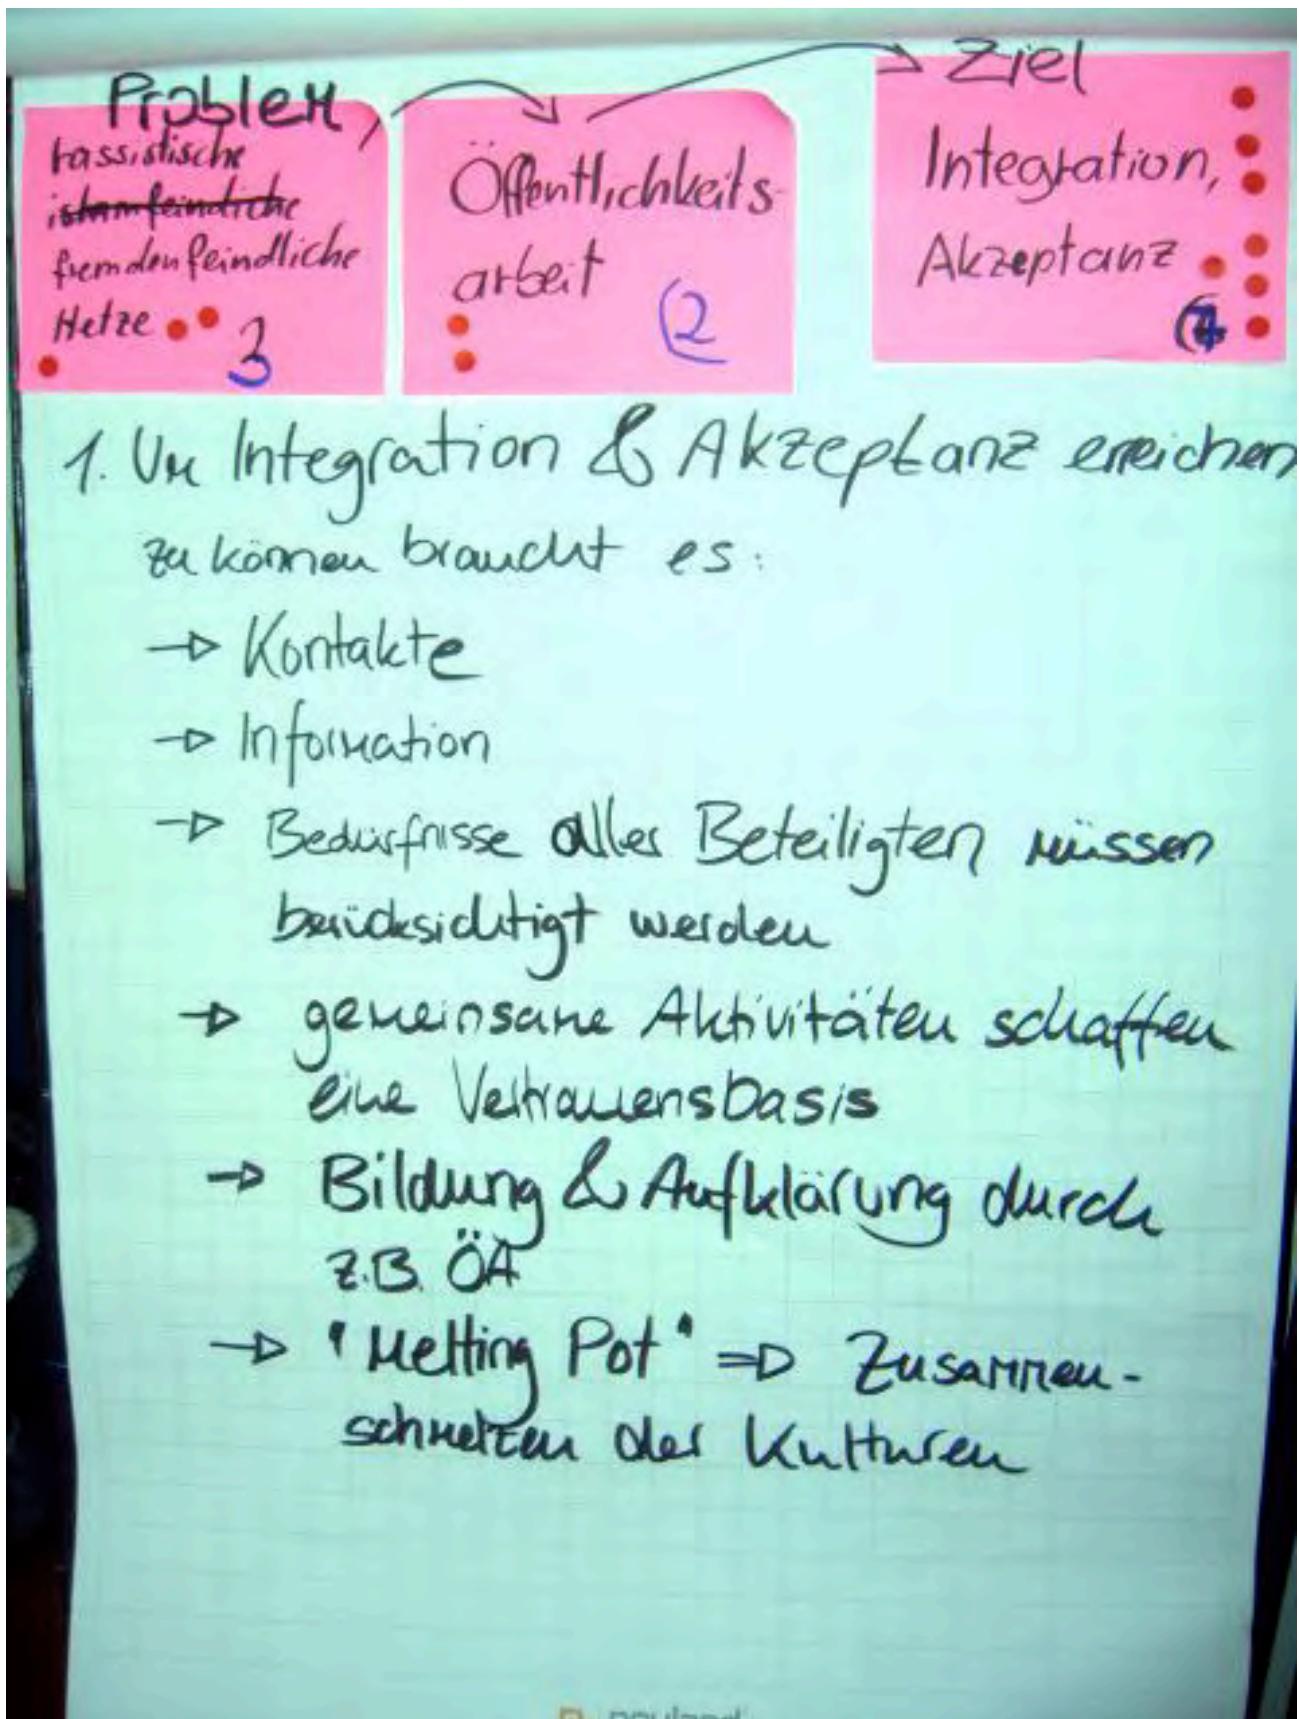 Problem
rassistische
islamfeindliche
fremdenfeindliche
Hetze
3
Öffentlichkeits-
arbeit
2
Ziel
Integration,
Akzeptanz
1. Um Integration & Akzeptanz erreichen
zu können braucht es:
→ Kontakte
→ Information
→ Bedürfnisse aller Beteiligten müssen
berücksichtigt werden
→ gemeinsame Aktivitäten schaffen
eine Vertrauensbasis
→ Bildung & Aufklärung durch
z.B. ÖA
→ "Melting Pot" ⇒ Zusammen-
schmelzen der Kulturen